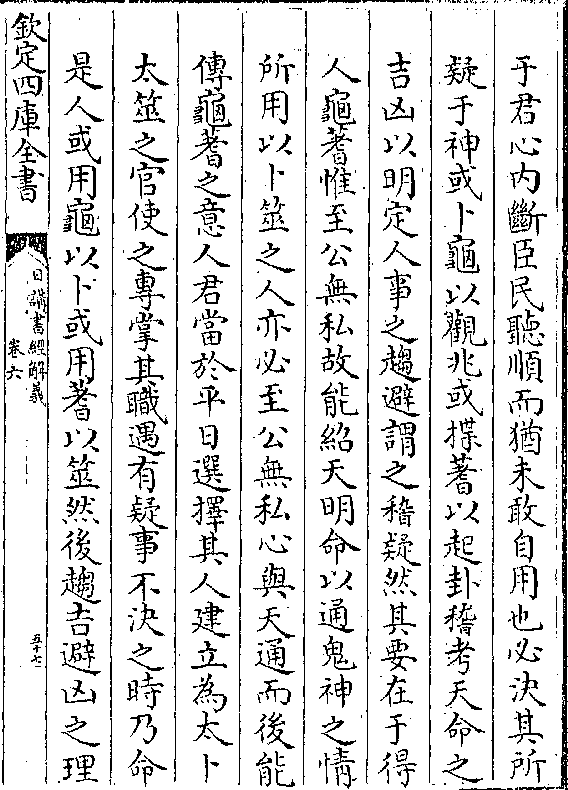 于君心内斷臣民聽順而猶未敢自用也必決其所
疑于神或卜龜以觀兆或揲蓍以起卦稽考天命之
吉凶以明定人事之趨避謂之稽疑然其要在于得
人龜蓍惟至公無私故能紹天明命以通鬼神之情
所用以卜筮之人亦必至公無私心與天通而後能
傳龜蓍之意人君當於平日選擇其人建立為太卜
太筮之官使之專掌其職遇有疑事不決之時乃命
是人或用龜以卜或用蓍以筮然後趨吉避凶之理
欽定四庫全書
日講書經解義
卷六
五十七